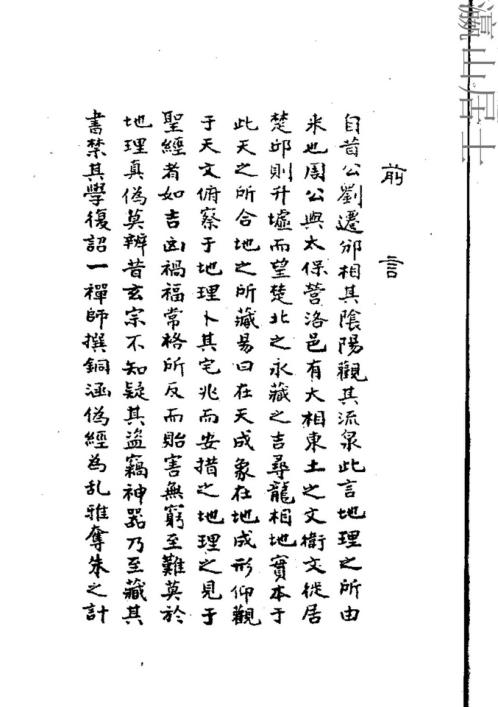 瀛山居士
前言
自昔公劉遷邠相其陰陽觀其流泉此言地理之所由
來也周公與太保營洛邑有大相東土之文衛文從居
楚邱則升墟而望楚北之永藏之吉尋龍相地實本于
此天之所合地之所藏易曰在天成象在地成形仰觀
于天文俯察于地理卜其宅兆而安措之地理之見于
聖經者如吉凶禍福常格所反而貽害無窮至難莫於
地理真偽莫辨昔玄宗不知疑其盜竊神器乃至藏其
書禁其學復詔一禪師撰銅涵偽經為乱雅奪朱之計